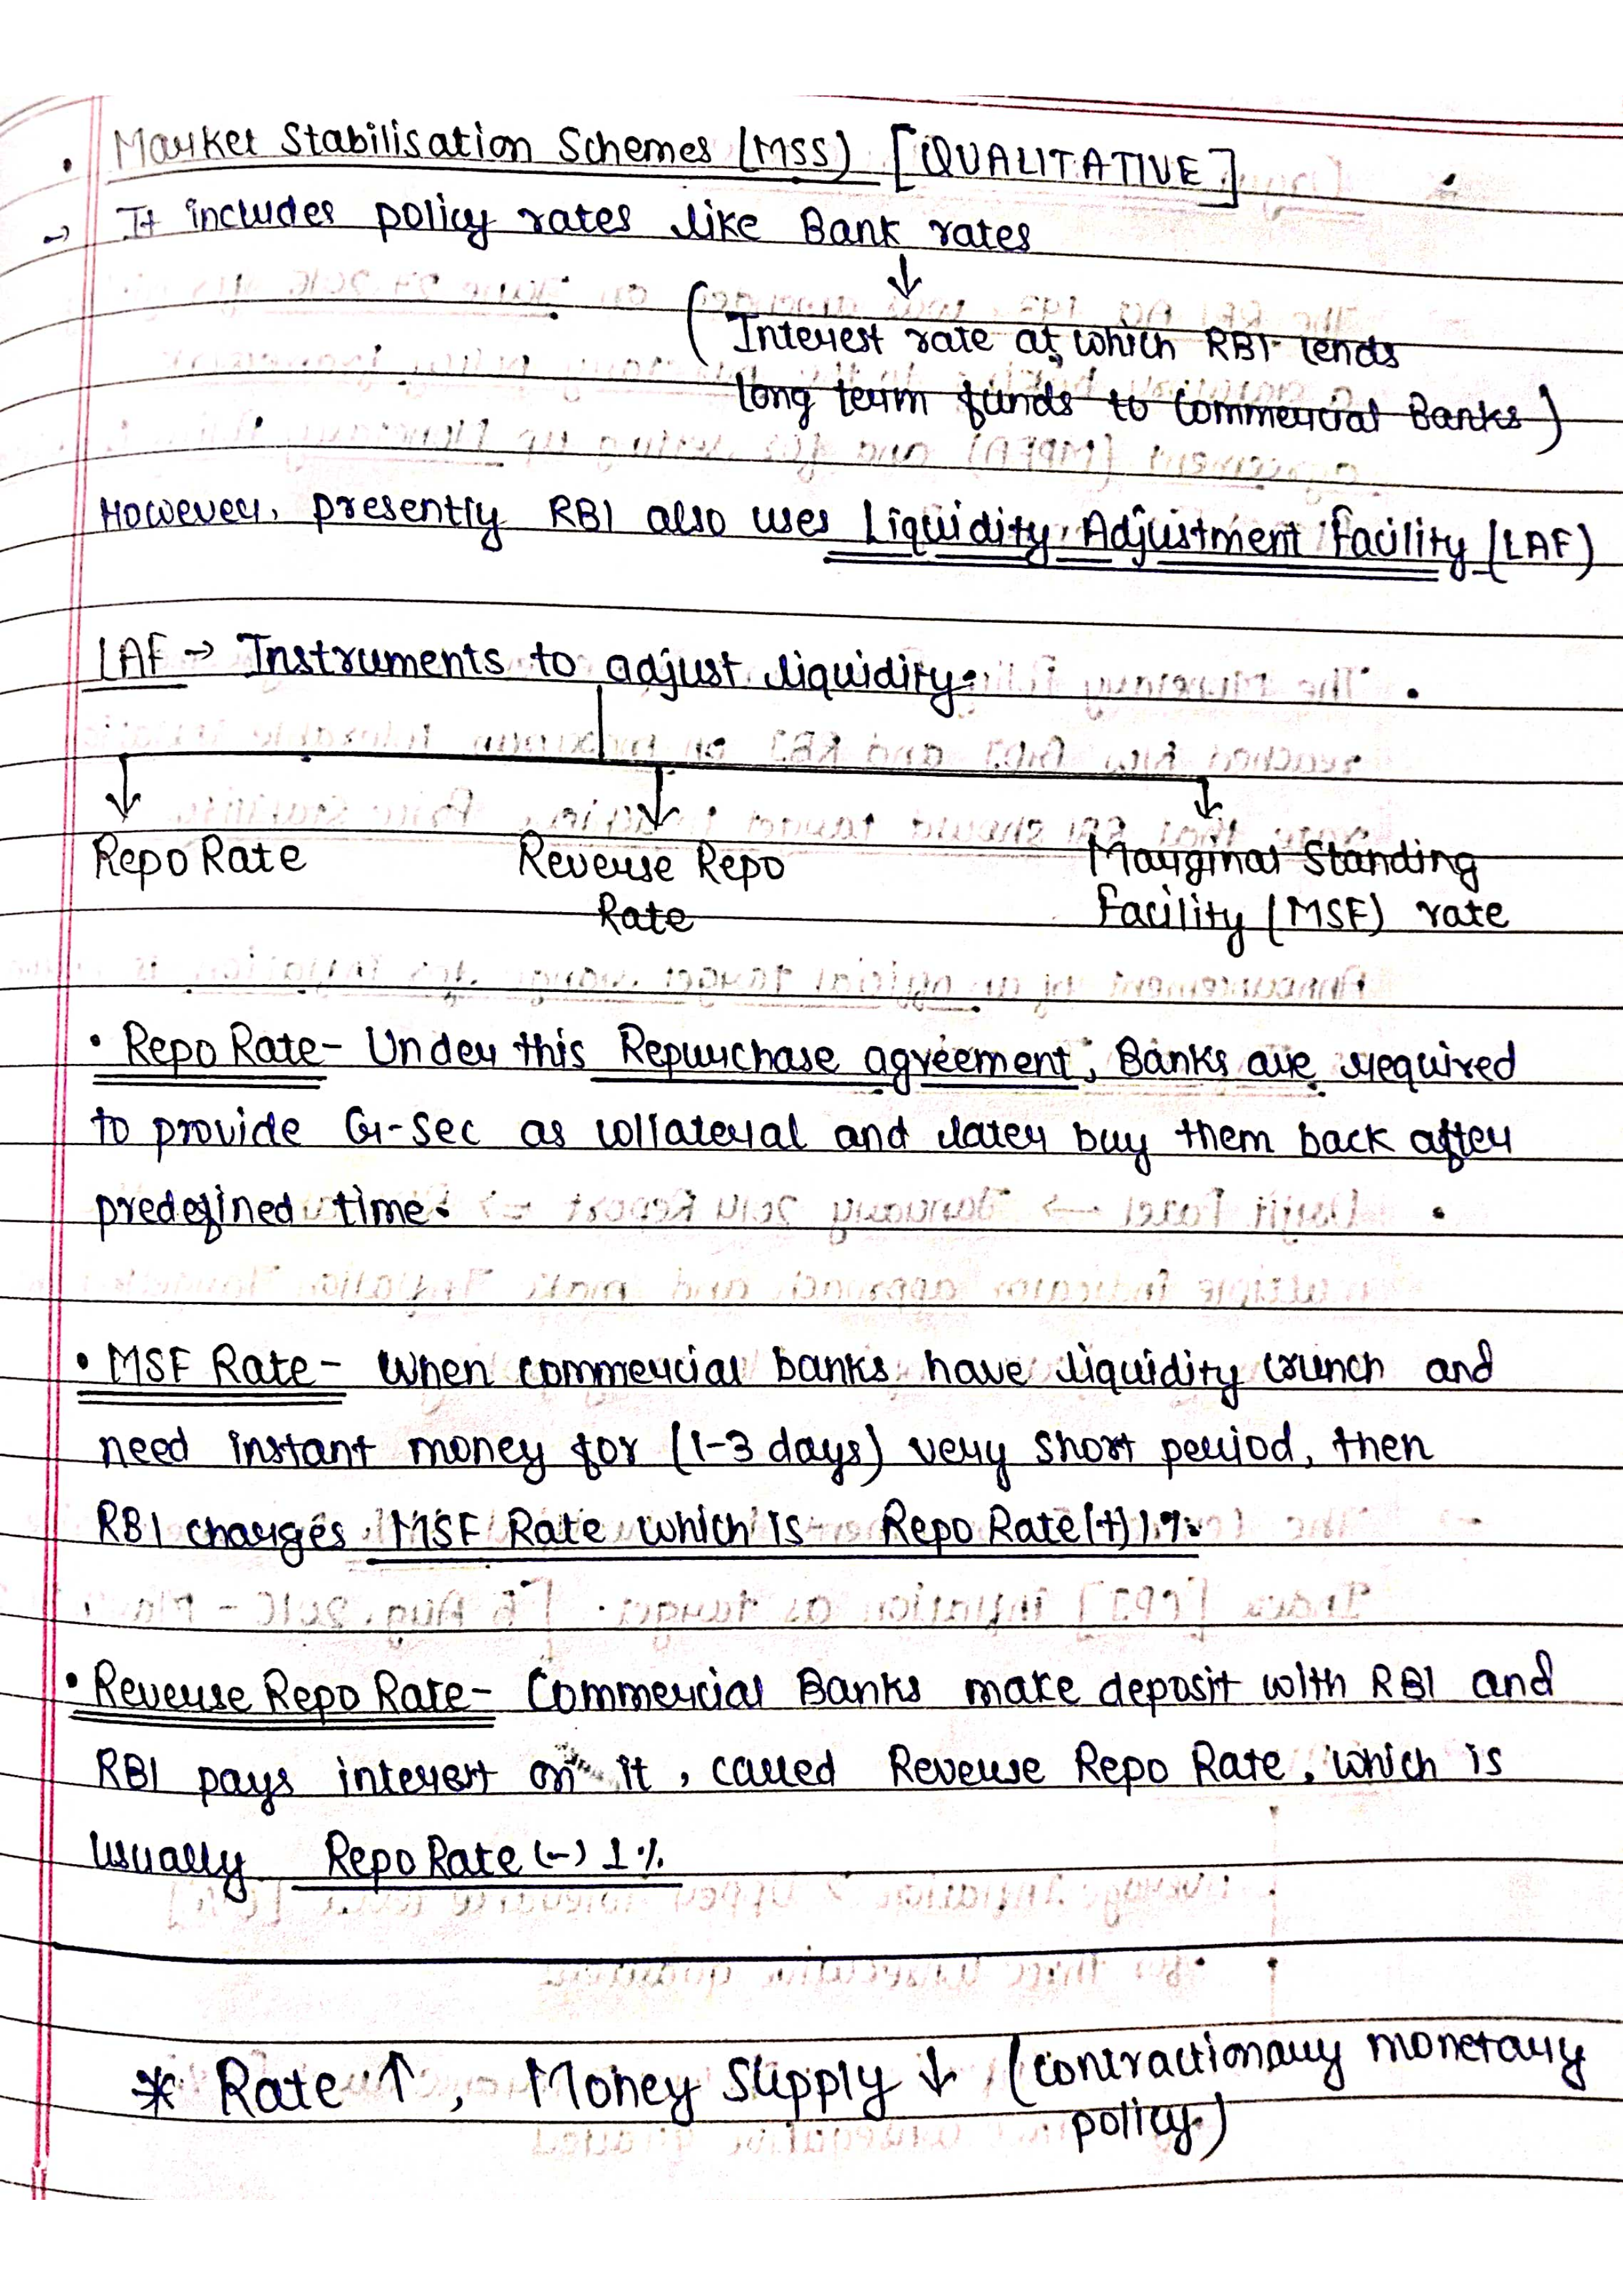 . Market Stabilisation Schemes (MSS) [QUALITATIVE]
→ It includes policy rates like Bank rates
↓
(Interest rate at which RBI lends
long term funds to Commercial Banks)
However, presently RBI also uses Liquidity Adjustment Facility (LAF)
LAF → Instruments to adjust liquidity.
Repo Rate Reverse Repo Marginal Standing
Rate Facility (MSF) rate
• Repo Rate - Under this Repurchase agreement, Banks are required
to provide G-Sec as collateral and later buy them back after
predefined time.
• MSF Rate - When commercial banks have liquidity crunch and
need instant money for (1-3 days) very short period, then
RBI charges MSF Rate which is Repo Rate (+) 1%
• Reverse Repo Rate - Commercial Banks make deposit with RBI and
RBI pays interest on it, called Reverse Repo Rate, which is
usually Repo Rate (-) 1%
* Rate ↑, Money Supply ↓ (contractionary monetary
policy)